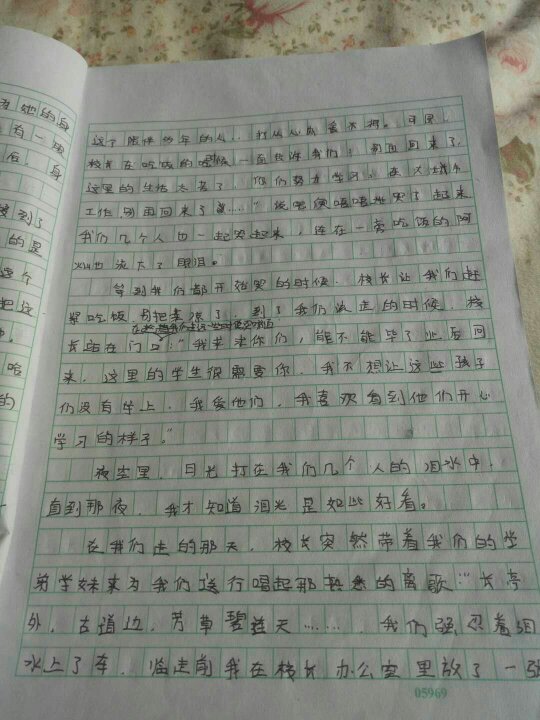 为她的身
有一周
后，身
受到了
的是
这个
把这
中。
哈
的
这个陪伴多年的人，打从心底看不起。可是，
校长在吃饭的时候一直给咱我们：别再回来了，
这里的生活太苦了，你们努力学习，在大城市
工作，别再回来了……"说着便唔唔地哭了起来
我们几个人也一起哭起来，连在一旁吃饭的阿
姨也流下了眼泪。
等到我们都开始哭的时候，校长让我们赶
紧吃饭，别把 饿了，到了我们该走的时候，校
长站在门口："我恳求你们，能不能毕了业后回
来，这里的学生很需要你，我不想让这些孩子
们没有学上，我爱他们，我喜欢看到他们开心
学习的样子。"
夜空里，月光打在我们几个人的泪水中，
直到那夜，我才知道泪光是如此好看。
在我们走的那天，校长突然带着我们的学
弟学妹来为我们送行唱起那熟悉的离歌"长亭
外，古道边，芳草碧连天……，我们强忍着泪
水上了车，临走前我在校长办公室里放了一张
05969